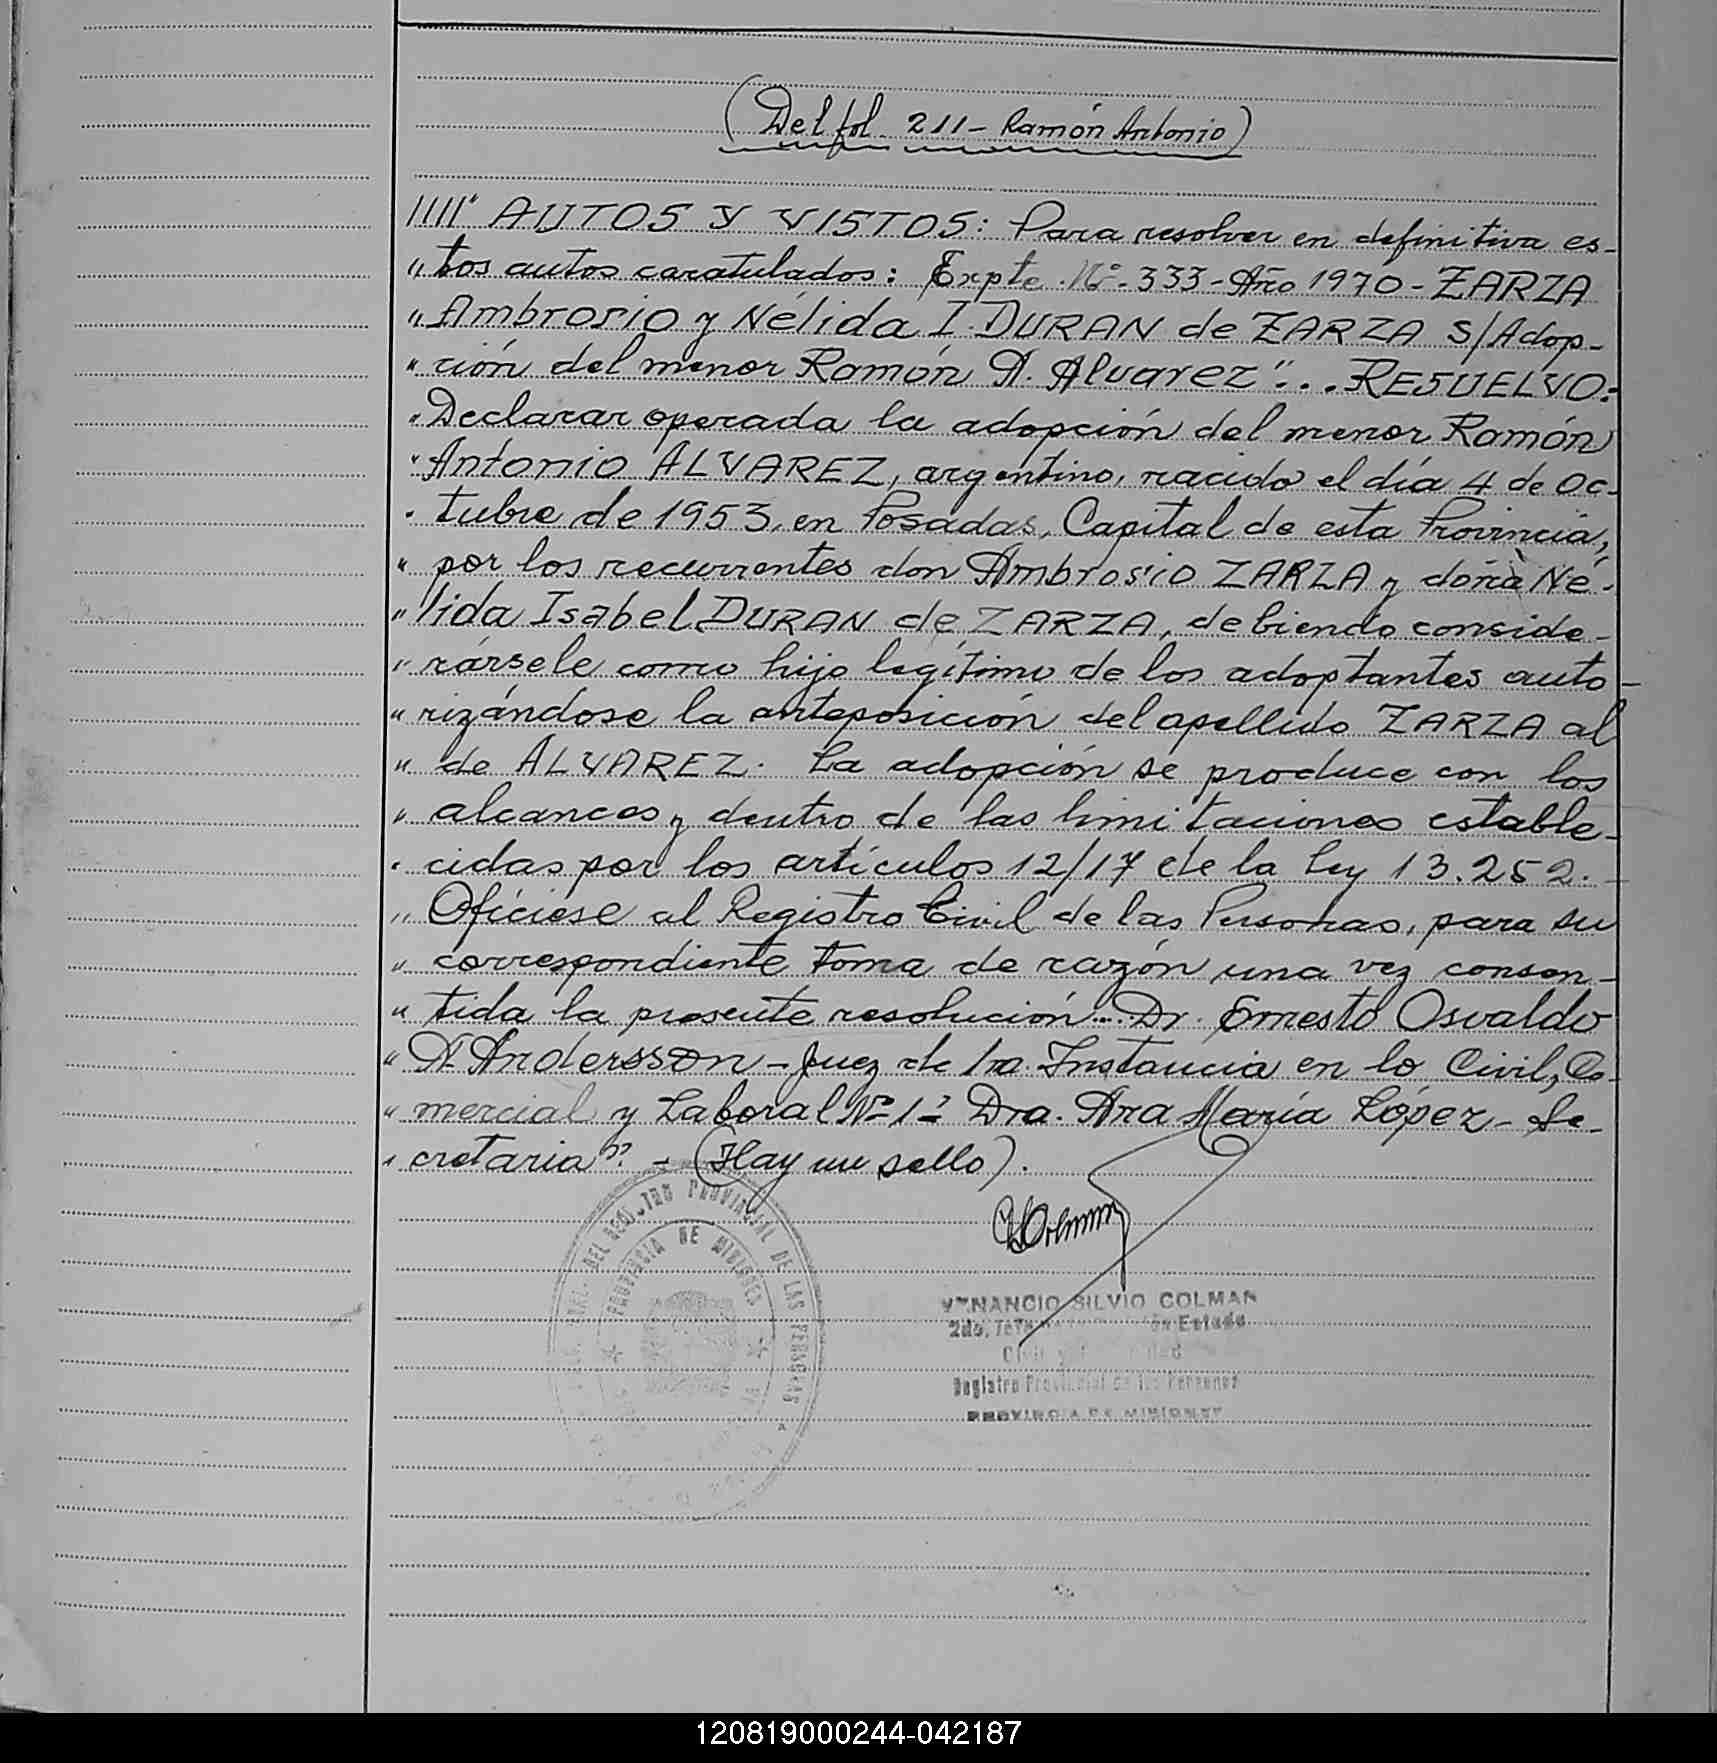 (Del fol. 211- Ramón Antonio)
///// "AUTOS Y VISTOS: Para resolver en definitiva es-
" tos autos caratulados: Expte. Nº. 333- Año 1970- ZARZA
" Ambrosio y Nélida I. DURAN de ZARZA s/Adop-
" ción del menor Ramón A. Alvarez"... RESUELVO:
" Declarar operada la adopción del menor Ramón
" Antonio ALVAREZ, argentino, nacido el día 4 de Oc-
" tubre de 1953, en Posadas, Capital de esta Provincia,
" por los recurrentes don Ambrosio ZARZA y doña Né-
" lida Isabel DURAN de ZARZA, debiendo conside-
" rársele como hijo legítimo de los adoptantes auto-
" rizándose la anteposición del apellido ZARZA al
" de ALVAREZ. La adopción se produce con los
" alcances y dentro de las limitaciones estable-
" cidas por los artículos 12/17 de la ley 13.252.-
" Ofíciese al Registro Civil de las Personas, para su
" correspondiente toma de razón una vez consen-
" tida la presente resolución... Dr. Ernesto Osvaldo
" A. Andersson - Juez de 1ra. Instancia en lo Civil, Co-
" mercial y Laboral Nº 1- Dra. Ana María López - Se-
" cretaria". - (Hay un sello).
DEL REGISTRO PROVINCIAL DE LAS PERSONAS
PROVINCIA DE MISIONES
VENANCIO SILVIO COLMAN
2do. Estado
Civil y
Registro Provincial de las Personas
PROVINCIA DE MISIONES
120819000244-042187